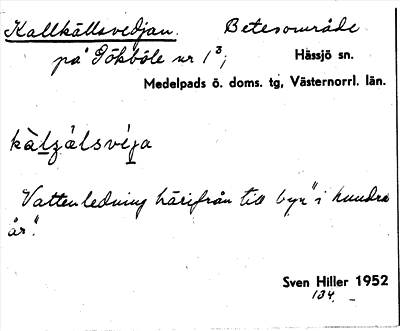 Kallkällsvedjan. Betesområde
på Gökböle nr 1³; Hässjö sn.
Medelpads ö. doms. tg, Västernorrl. län.
kàlzálsvíʒa
Vattenledning härifrån till byn "i hundra
år".
Sven Hiller 1952
134